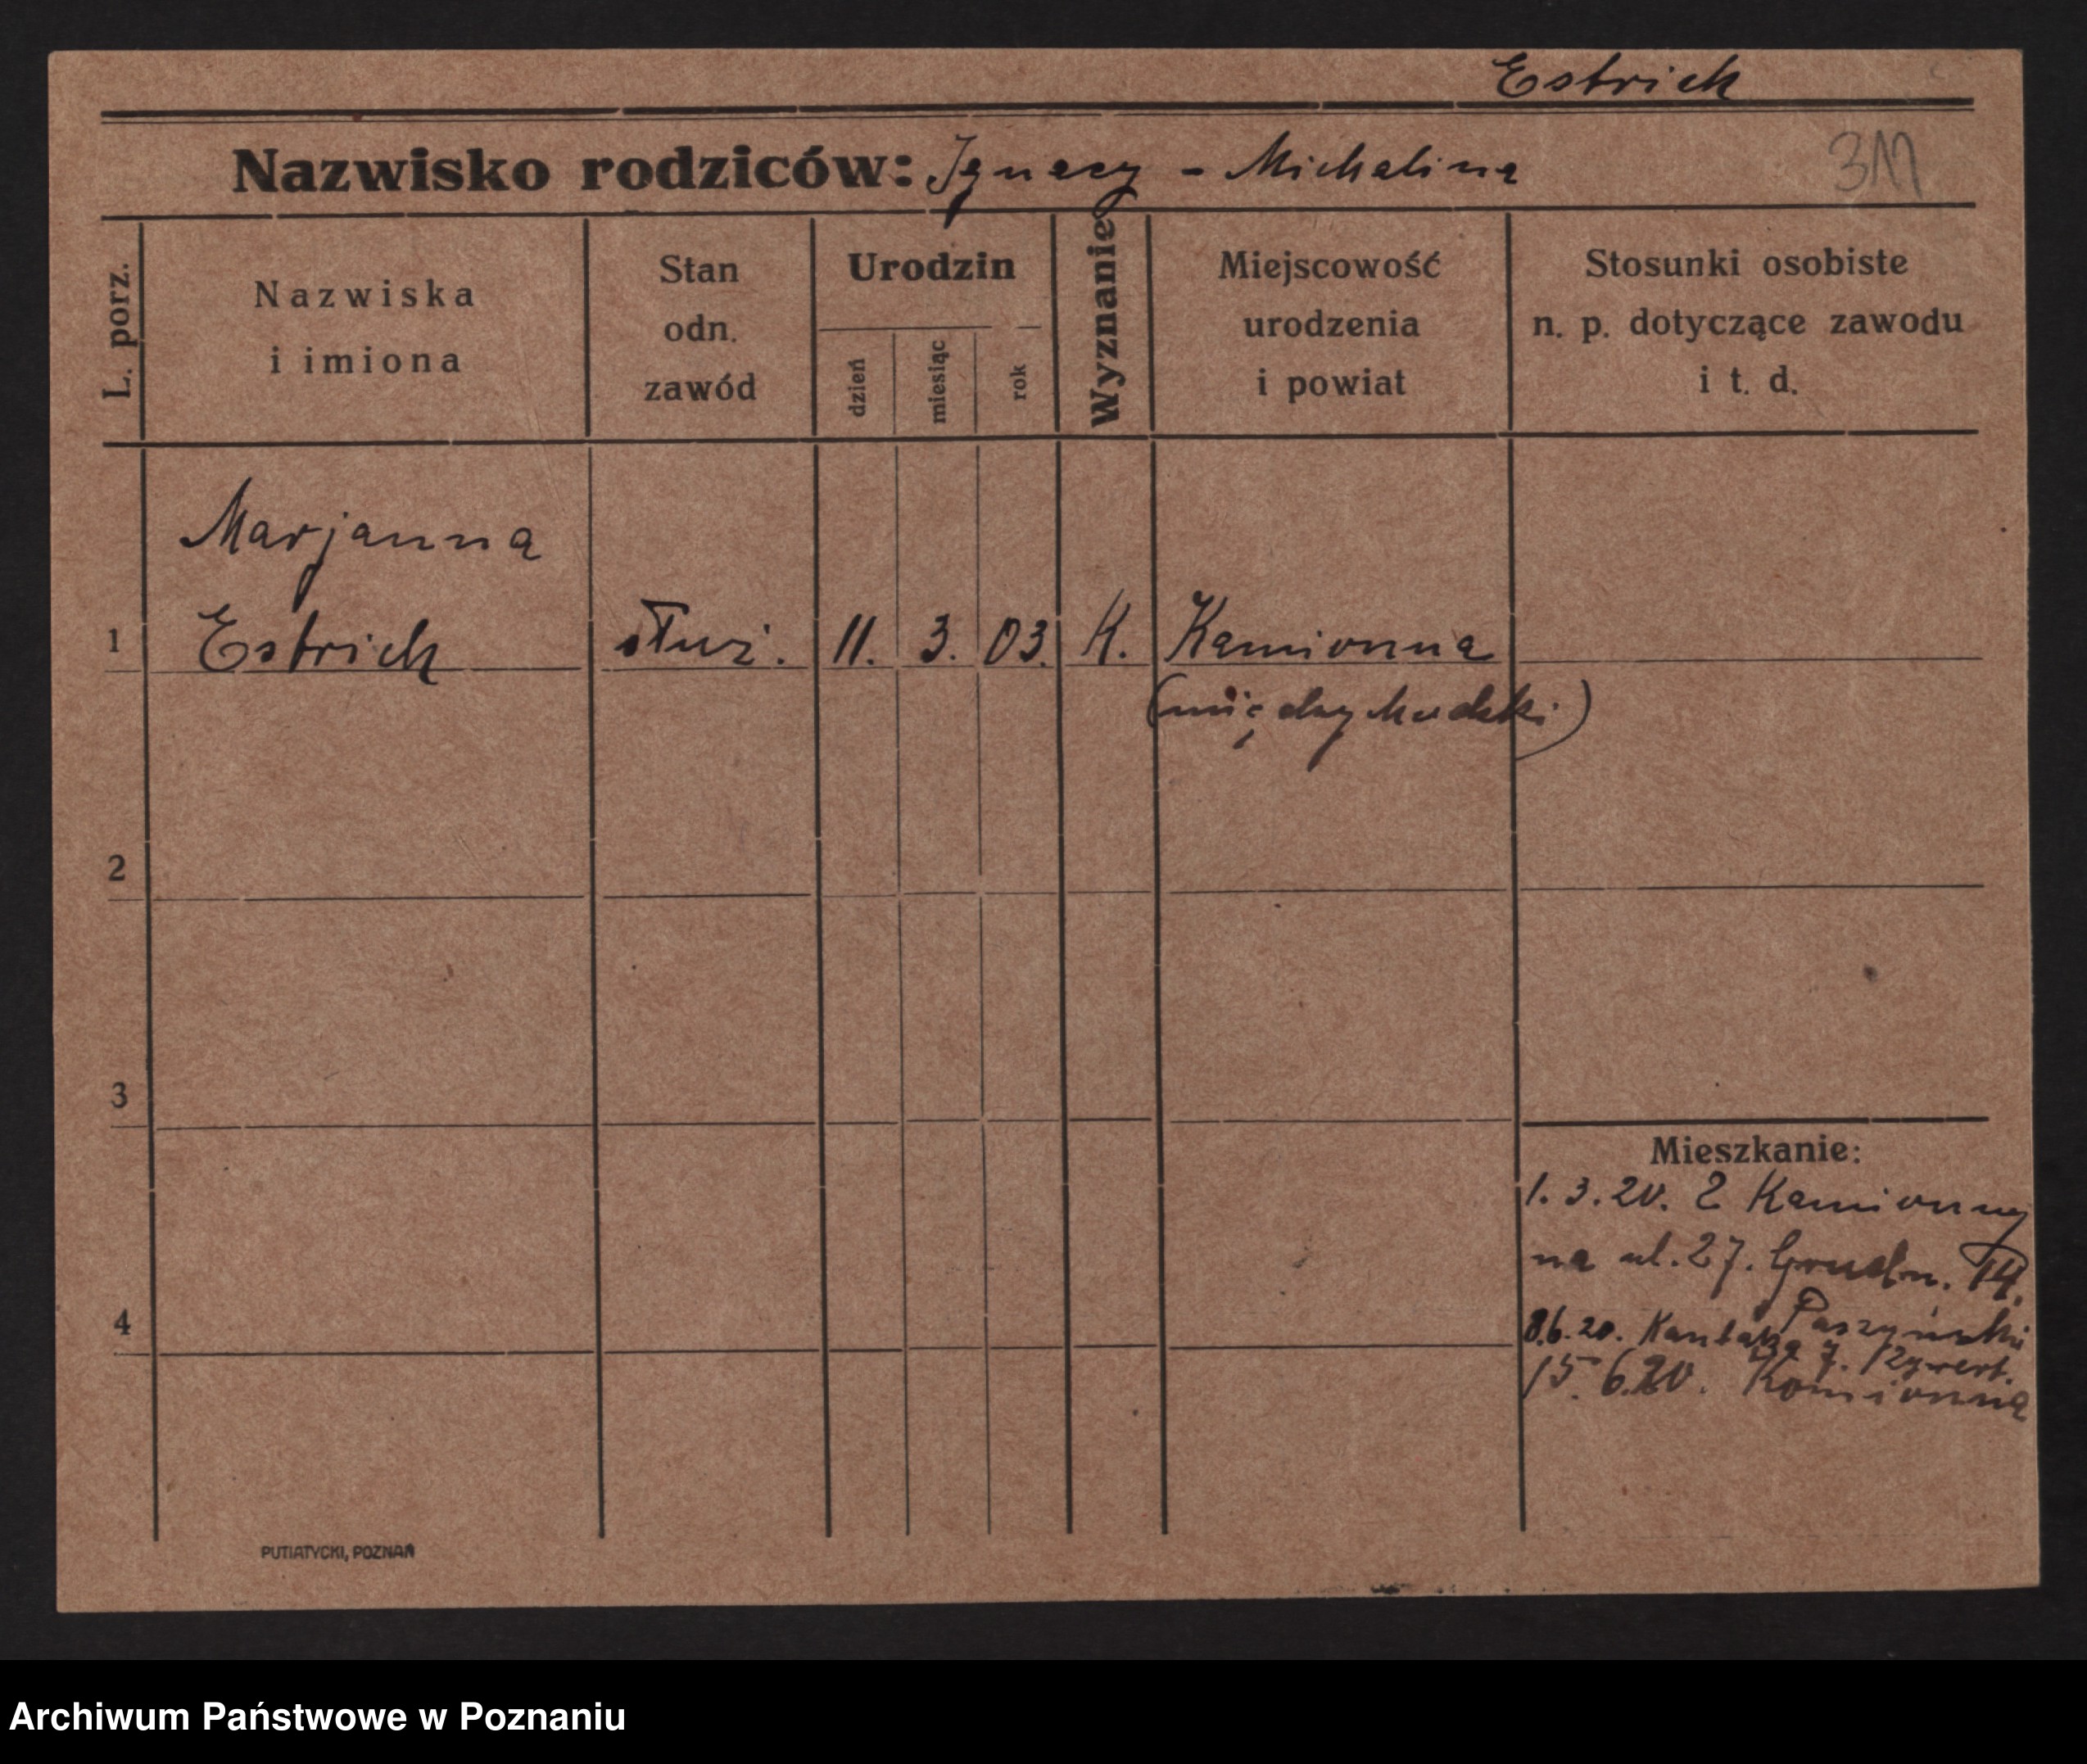 Estrich
Nazwisko rodziców: Ignacy - Michalina
311
L. porz.
Nazwiska
i imiona
Stan
odn.
zawód
Urodzin
dzień
miesiąc
rok
Wyznanie
Miejscowość
urodzenia
i powiat
Stosunki osobiste
n. p. dotyczące zawodu
i t. d.
Marjanna
1 Estrich służ. 11. 3. 03. K. Kamionna
(międzychodzki)
2
3
Mieszkanie:
1. 3. 20. Z Kamionny
na ul. 27. Grudn. 14.
Paszyński
4
8.6.20. Kantaka 7.
15.6.20. Kamionna
PUTIATYCKI, POZNAŃ
Archiwum Państwowe w Poznaniu